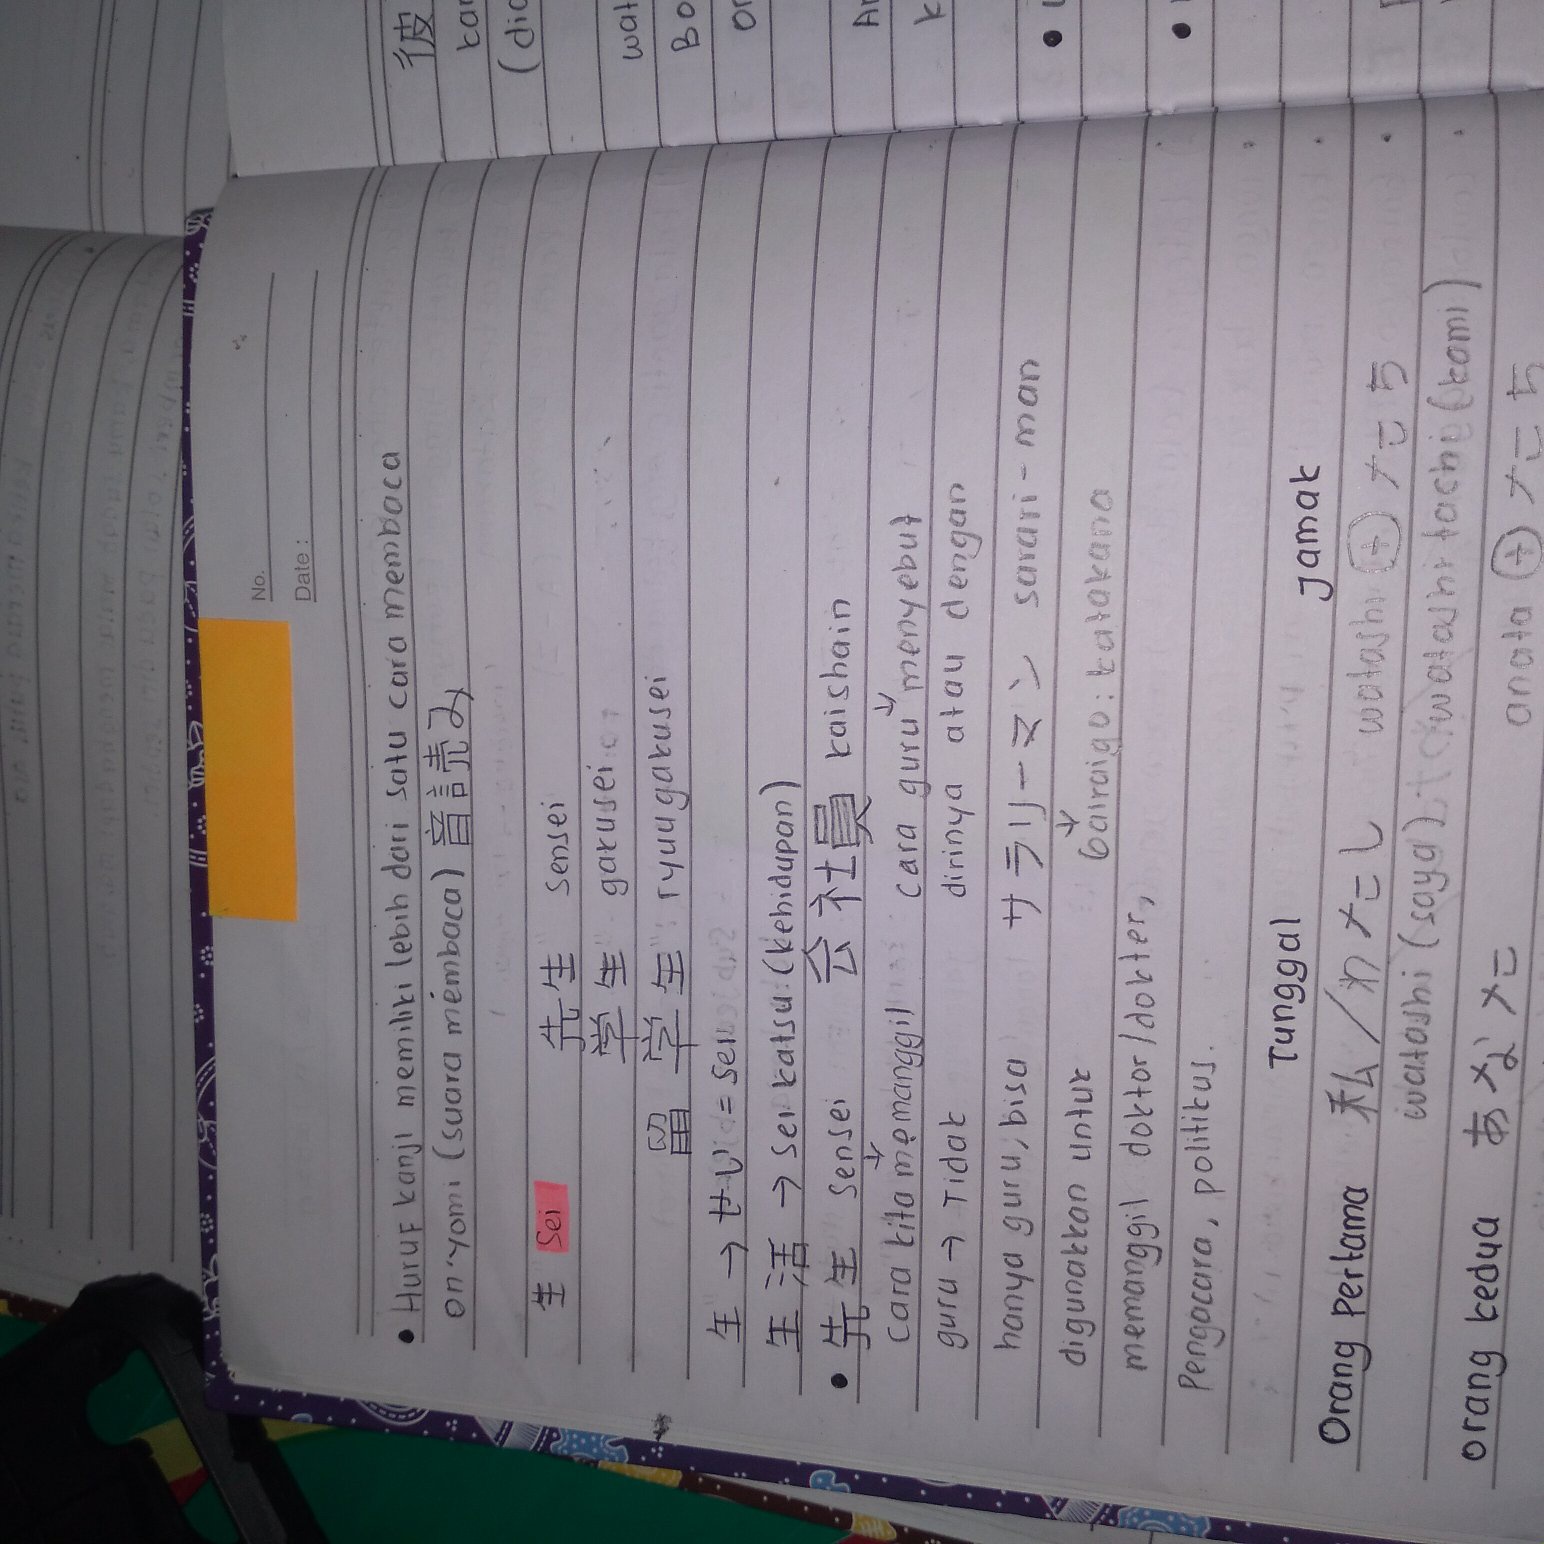 No.
Date:
• Huruf kanji memiliki lebih dari satu cara membaca
on-yomi (suara membaca) 音読み
生 sei 先生 sensei
学生 gakusei
留学生 ryuugakusei
生 → せい = sei
生活 → seikatsu (kehidupan)
• 先生 sensei 会社員 kaishain
cara kita memanggil cara guru menyebut
guru → Tidak dirinya atau dengan
hanya guru, bisa サラリーマン sarari-man
digunakkan untuk gairaigo: katakana
memanggil doktor/dokter,
Pengacara, politikus.
Tunggal Jamak
Orang Pertama 私/わたし watashi + たち
watashi (saya) (watashi tachi) (kami)
orang kedua あなた anata + たち
彼